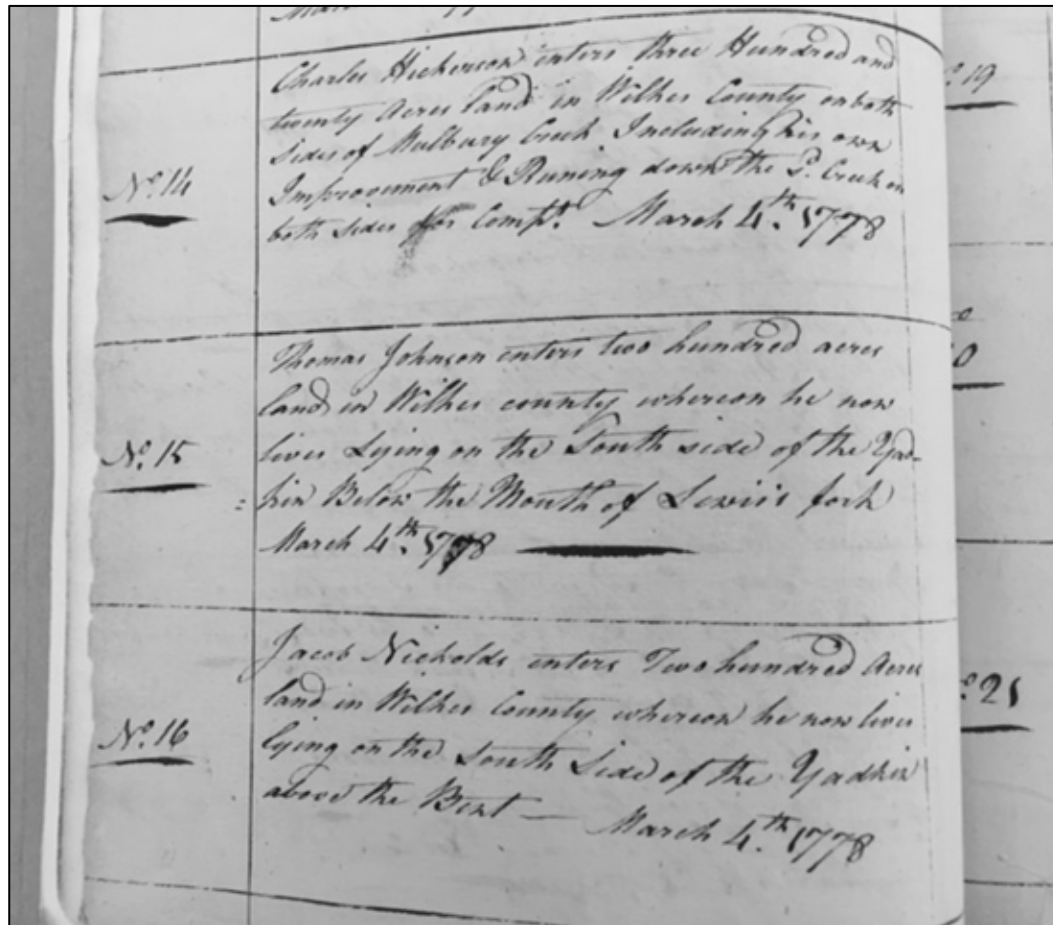 March
Charles Hickerson enters three Hundred and
twenty Acres land in Wilkes County on both
sides of Mulbury Creek Including his own
No. 14
Improvement & Runing down the Sd. Creek on
both sides for Compt. March 4th. 1778
Thomas Johnson enters two hundred acres
land in Wilkes county whereon he now
No. 15
lives Lying on the South side of the Yad-
=kin Below the Mouth of Lewis's fork
March 4th. 1778
Jacob Nicholds enters Two hundred Acres
land in Wilkes County whereon he now lives
No. 16
lying on the South Side of the Yadkin
above the Bent — March 4th. 1778
o. 19
0
o. 21